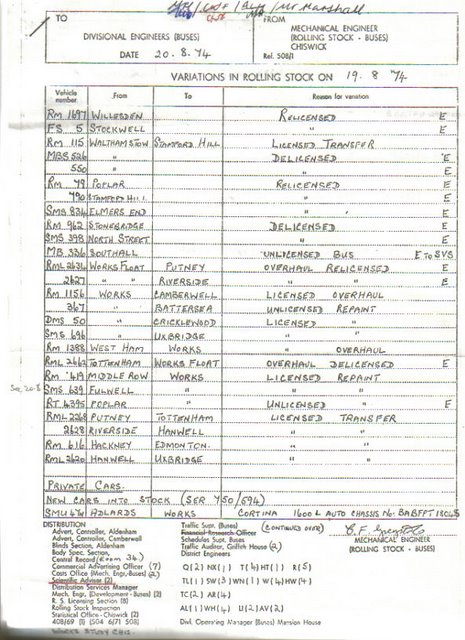 Mr Marshall
TO
DIVISIONAL ENGINEERS (BUSES)
DATE 20.8.74
FROM
MECHANICAL ENGINEER
(ROLLING STOCK - BUSES)
CHISWICK
Ref. 508/1
VARIATIONS IN ROLLING STOCK ON 19.8 74
Vehicle number From To Reason for variation
RM 1697 WILLESDEN RELICENSED E
FS 5 STOCKWELL " E
RM 115 WALTHAMSTOW STAMFORD HILL LICENSED TRANSFER
MBS 526 " DELICENSED E
550 " " E
RM 79 POPLAR RELICENSED E
790 STAMFORD HILL " E
SMS 834 ELMERS END " E
RM 962 STONEBRIDGE DELICENSED E
SMS 398 NORTH STREET " E
MB 336 SOUTHALL UNLICENSED BUS E TO SVS
RML 2634 WORKS FLOAT PUTNEY OVERHAUL RELICENSED E
2627 " " RIVERSIDE " " E
RM 1156 WORKS CAMBERWELL LICENSED OVERHAUL
367 " BATTERSEA UNLICENSED REPAINT
DMS 50 " CRICKLEWOOD LICENSED "
SMS 696 " UXBRIDGE " "
RM 1388 WEST HAM WORKS " OVERHAUL
RML 2662 TOTTENHAM WORKS FLOAT OVERHAUL DELICENSED E
RM 419 MIDDLE ROW WORKS LICENSED REPAINT
See 20.8 SMS 639 FULWELL " " "
RT 4395 POPLAR " UNLICENSED " E
RML 2268 PUTNEY TOTTENHAM LICENSED TRANSFER
2628 RIVERSIDE HANWELL " "
RM 616 HACKNEY EDMONTON " "
RML 2620 HANWELL UXBRIDGE " "
PRIVATE CARS.
NEW CARS INTO STOCK (SER 750/694)
SMU 67M ADLANDS WORKS CORTINA 1600 L AUTO CHASSIS No.
DISTRIBUTION
Advert, Controller, Aldenham
Advert, Controller, Camberwell
Blinds Section, Aldenham
Body Spec, Section,
Central Record (Room 34)
Commercial Advertising Officer (7)
Costs Office (Mech. Engs-Buses) (2)
Scientific Adviser (2)
Distribution Services Manager
Mech. Engr, (Development - Buses) (2)
R. S. Licensing Section (8)
Rolling Stock Inspection
Statistical Office - Chiswick (2)
408/69 (1) (S04 6/71 508)
WORKS STUDY CHIS.
Traffic Supt, (Buses)
Financial Research Officer
Schedules Supt, Buses
Traffic Auditor, Griffith House (2)
District Engineers
Q (2) NX (1) T (4) HT (1) R (5)
TL (1) SW (3) WN (1) W (4) HW (4)
TC (2) AR (4)
AL (1) WH (4) U (2) AV (2)
Divl. Operating Manager (Buses) Mansion House
(CONTINUED OVER)
MECHANICAL ENGINEER
(ROLLING STOCK - BUSES)